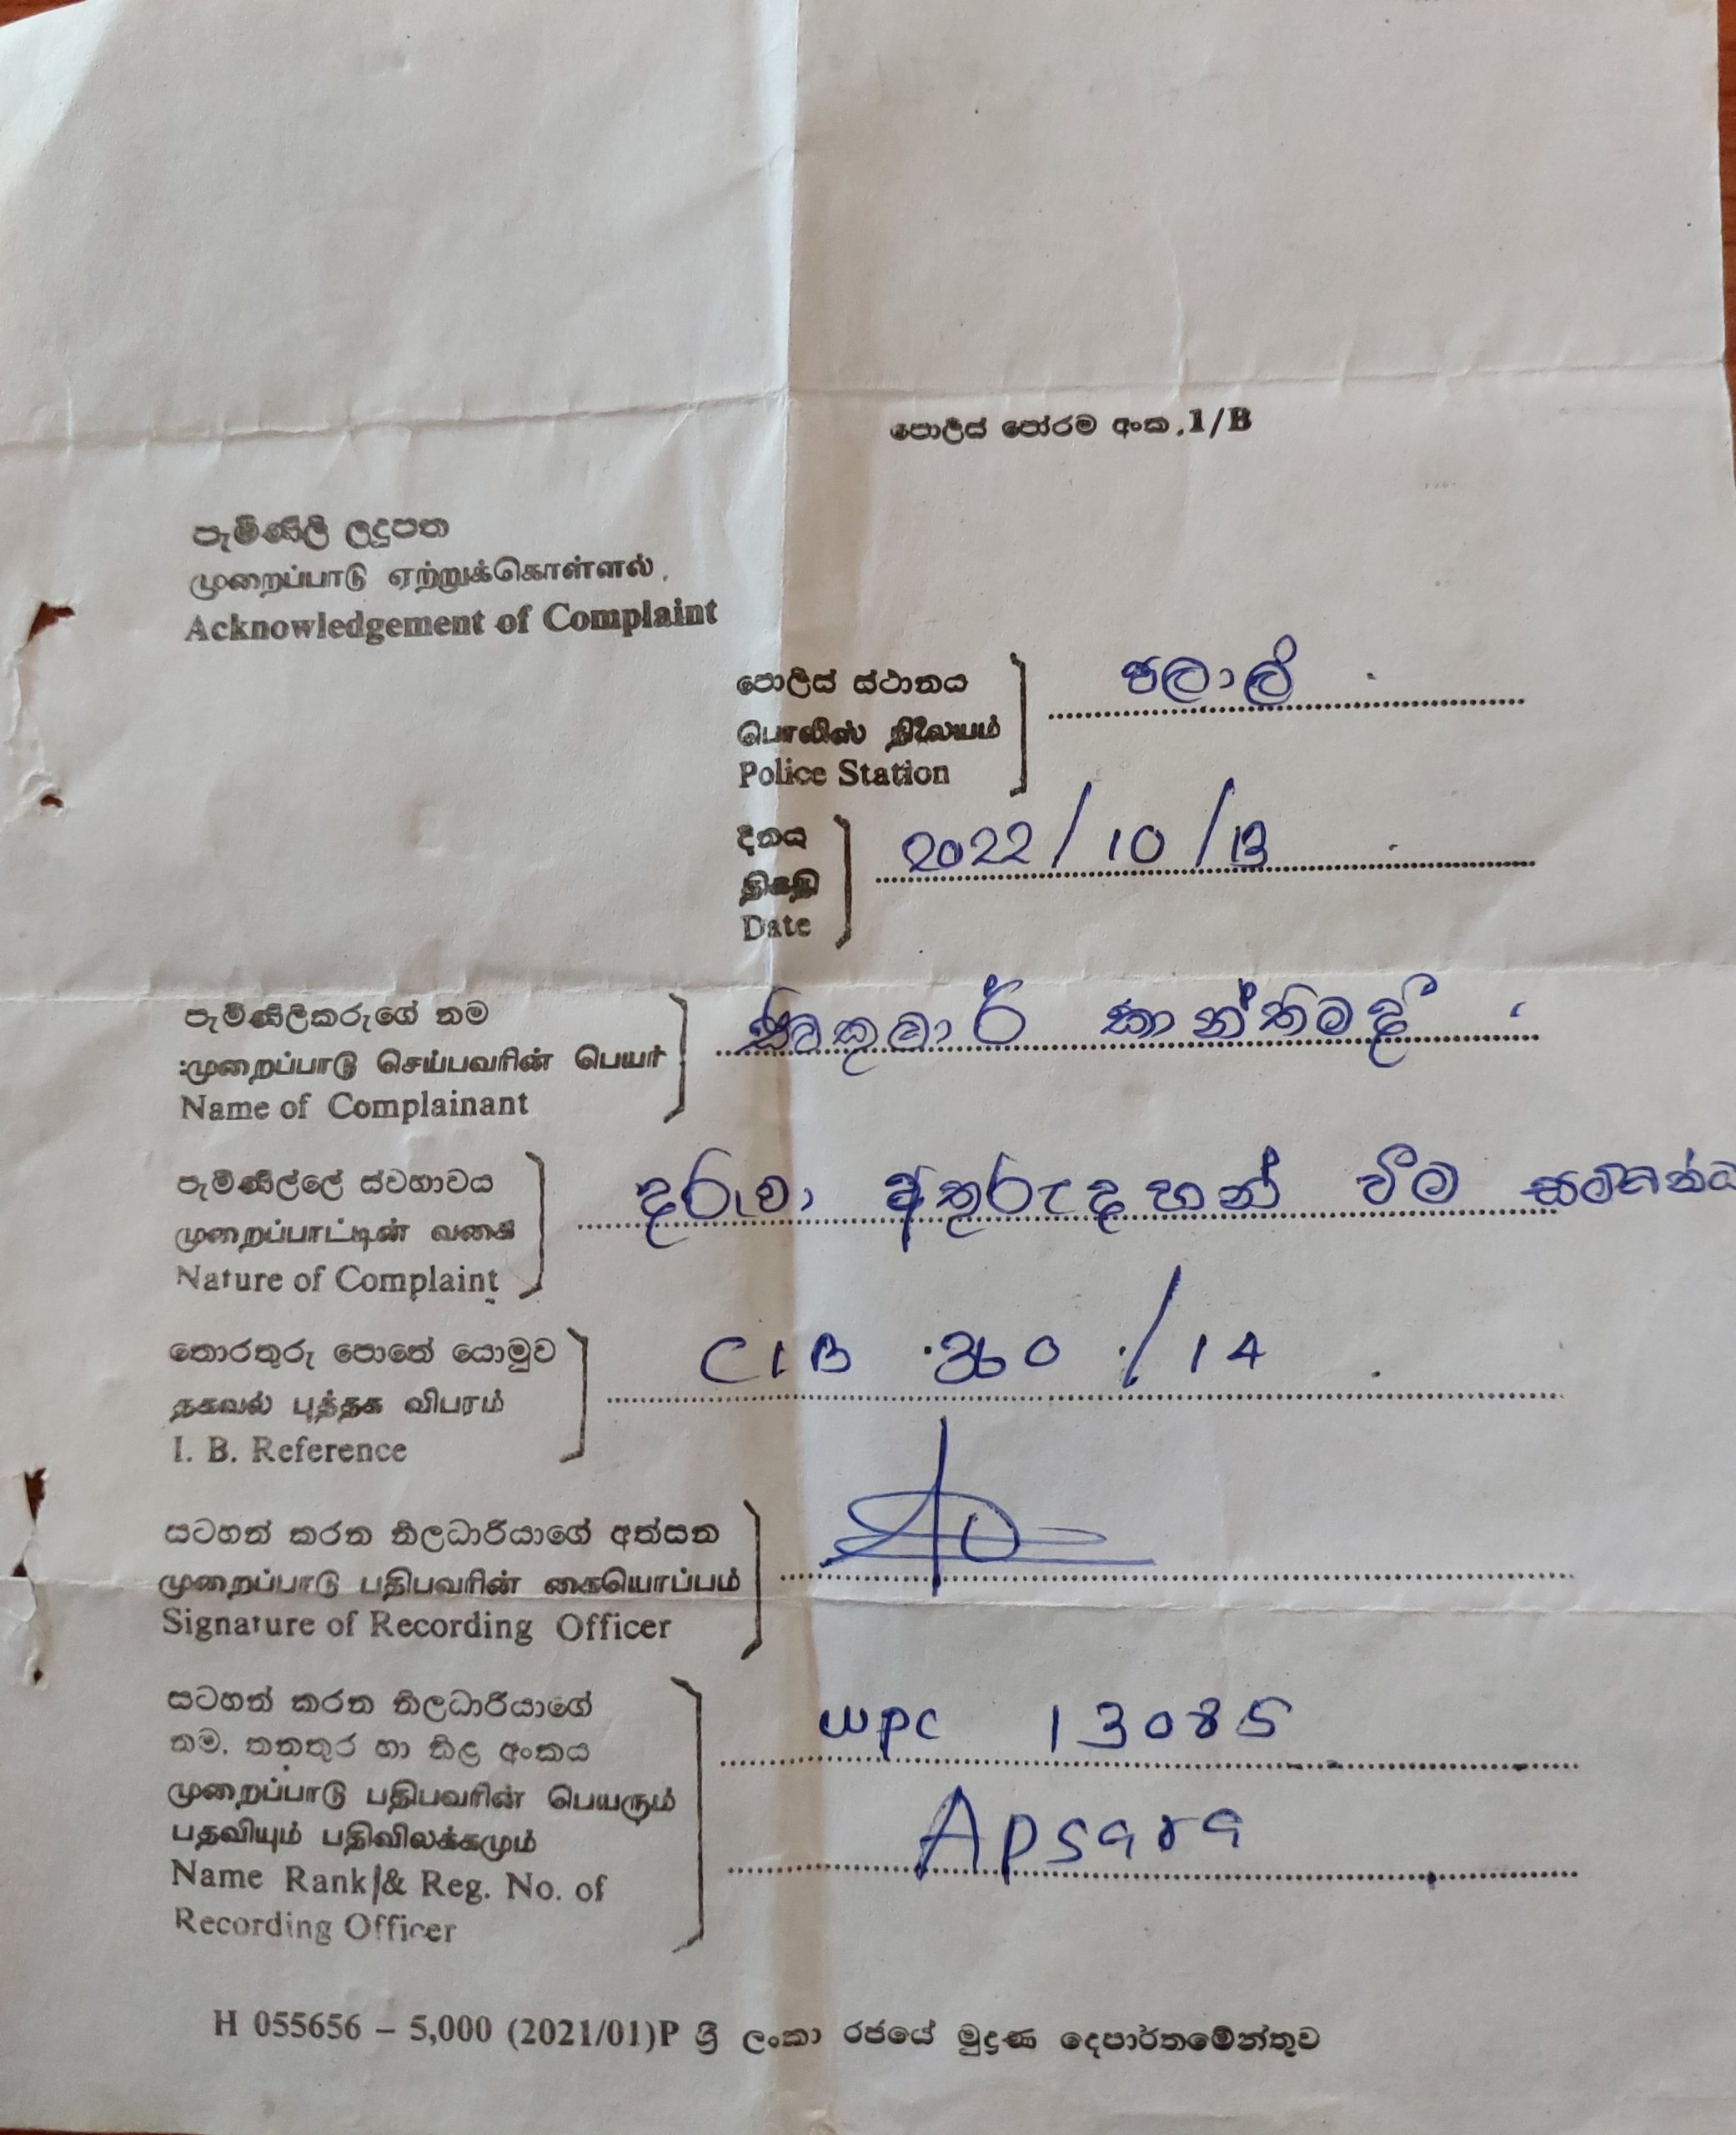 පොලිස් පෝරම අංක.1/B
පැමිණිලි ලදුපත
முறைப்பாடு ஏற்றுக்கொள்ளல்.
Acknowledgement of Complaint
පොලිස් ස්ථානය
பொலிஸ் நிலையம்
Police Station
පලාලි
දිනය
திகதி
Date
2022/10/13
පැමිණිලිකරුගේ නම
முறைப்பாடு செய்பவரின் பெயர்
Name of Complainant
කාන්තිමදී
පැමිණිල්ලේ ස්වභාවය
முறைப்பாட்டின் வகை
Nature of Complaint
දරුවා අතුරුදහන් වීම
තොරතුරු පොතේ යොමුව
தகவல் புத்தக விபரம்
I. B. Reference
CIB 360 / 14
සටහන් කරන නිලධාරියාගේ අත්සන
முறைப்பாடு பதிபவரின் கையொப்பம்
Signature of Recording Officer
සටහන් කරන නිලධාරියාගේ
නම, තනතුර හා නිළ අංකය
முறைப்பாடு பதிபவரின் பெயரும்
பதவியும் பதிவிலக்கமும்
Name Rank & Reg. No. of
Recording Officer
wpc 13085
Apsara
H 055656 – 5,000 (2021/01)P ශ්‍රී ලංකා රජයේ මුද්‍රණ දෙපාර්තමේන්තුව